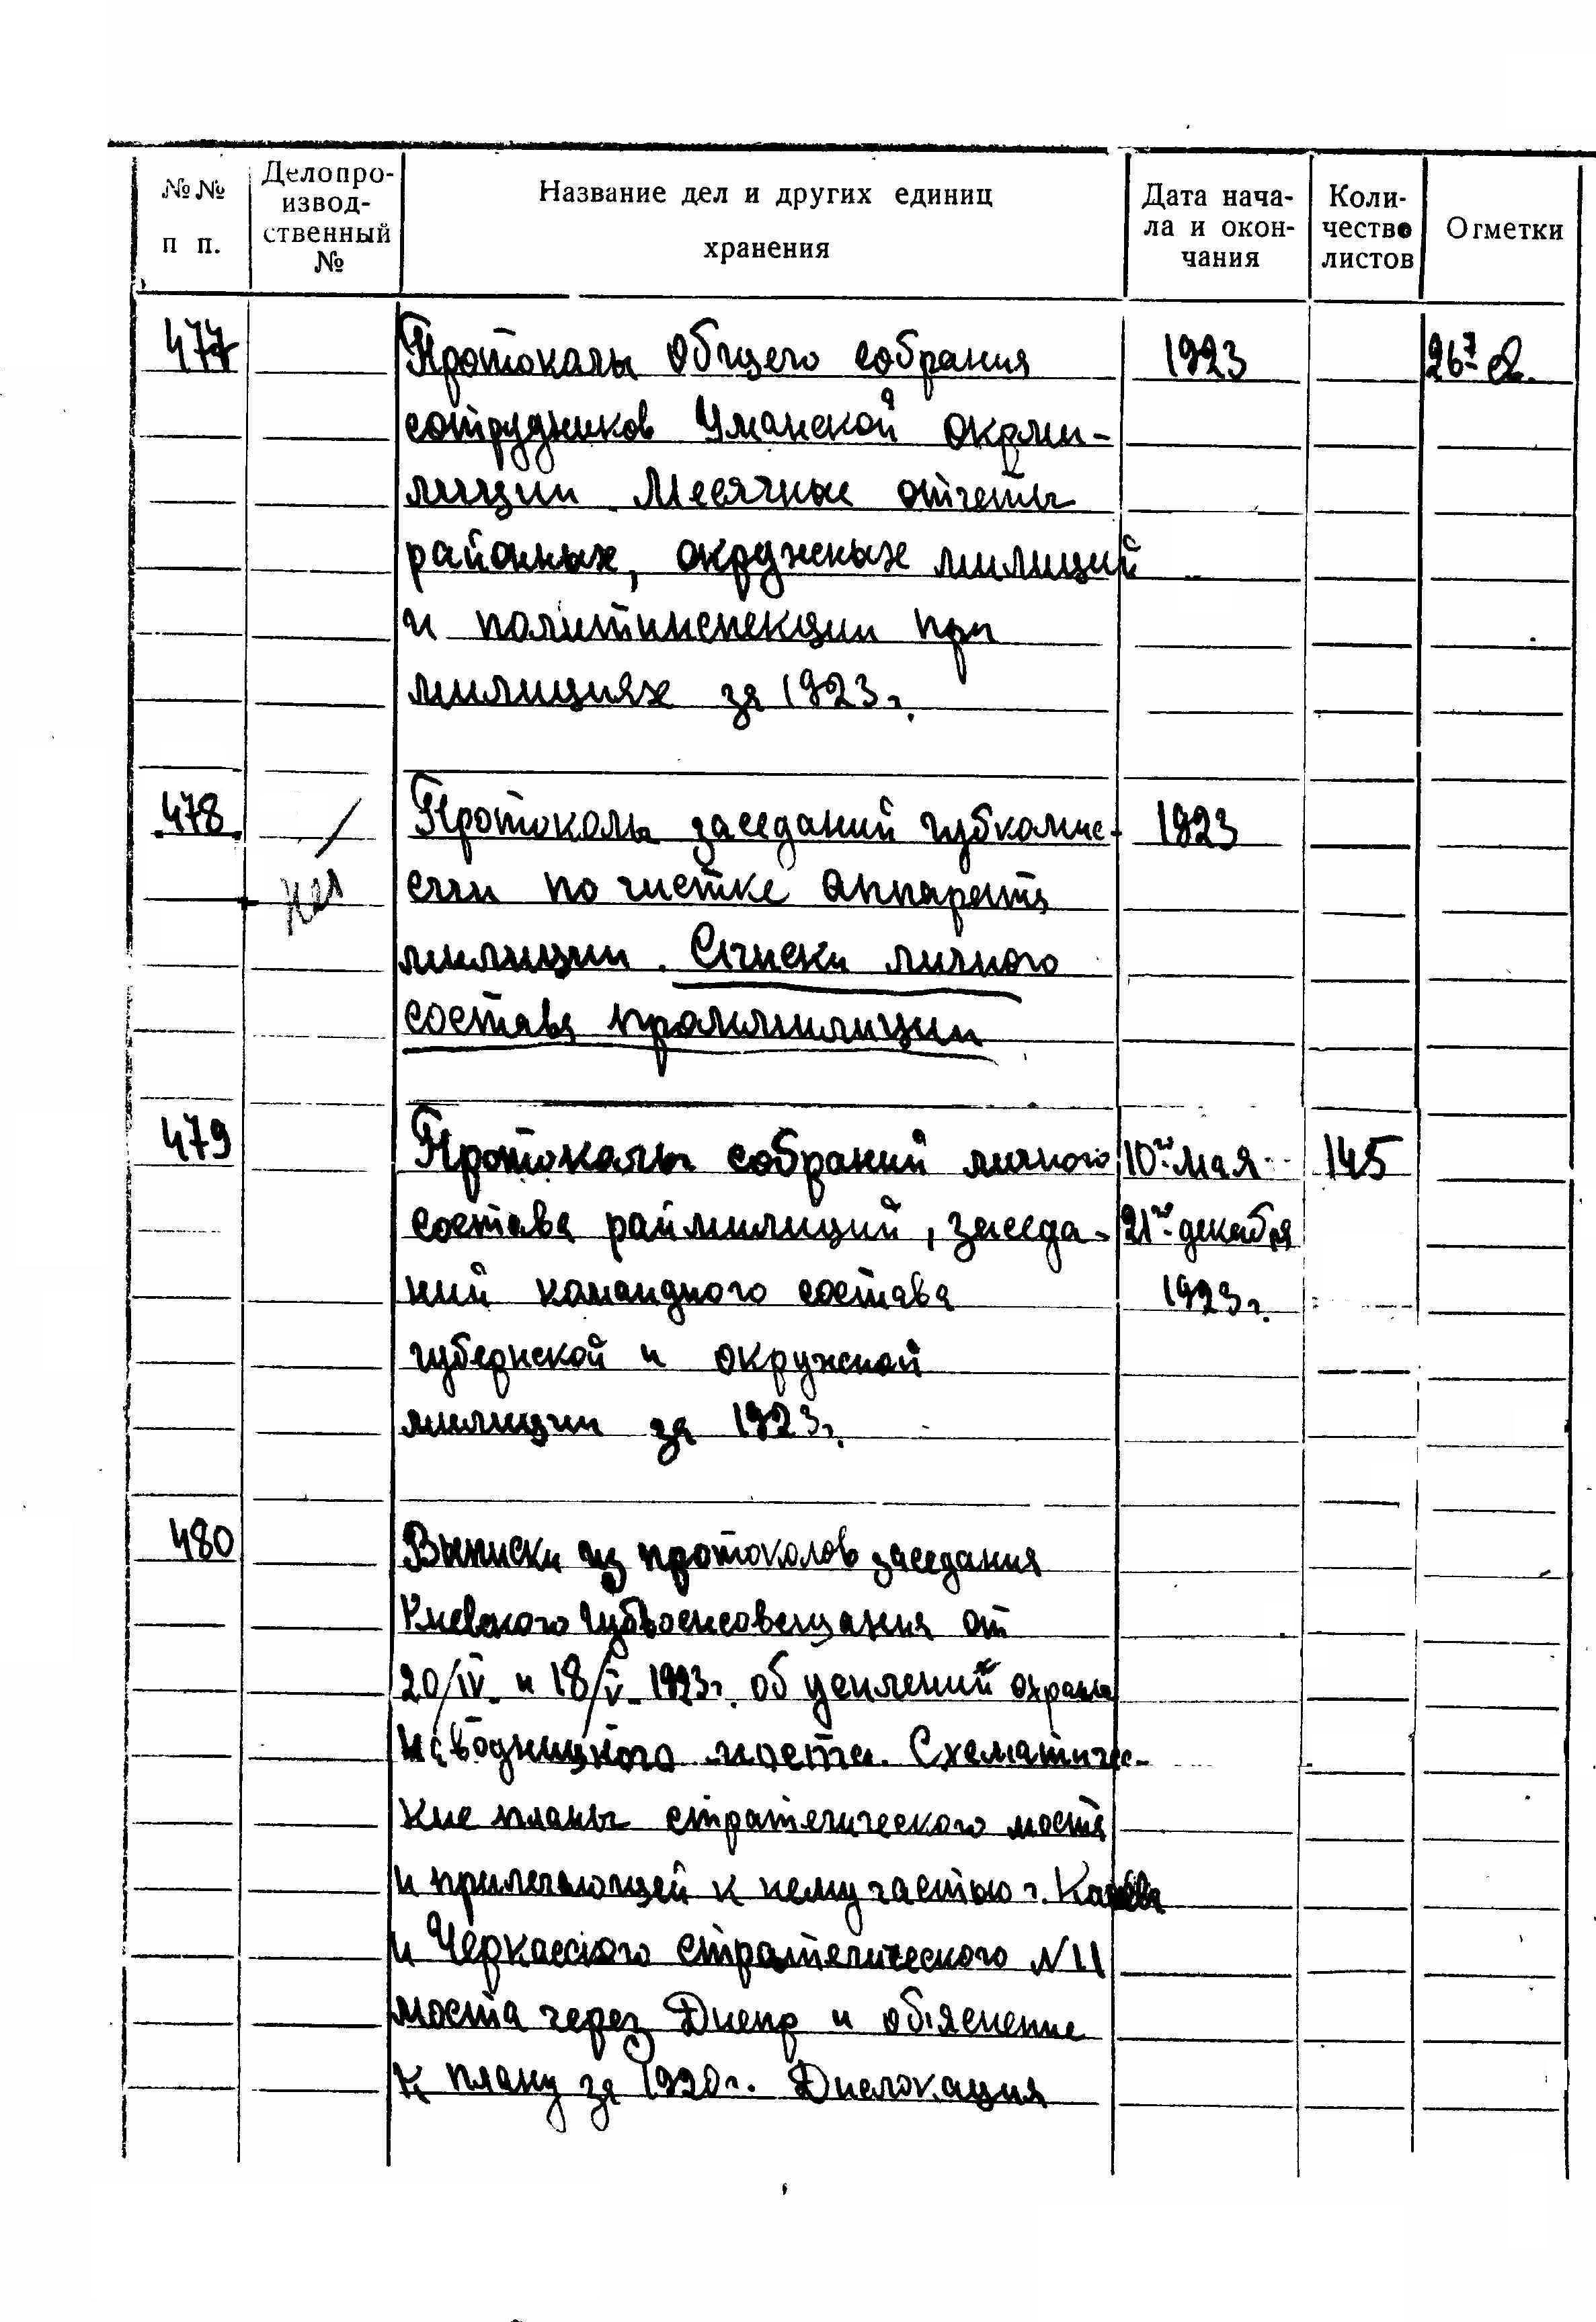 №№ п п.
Делопро-
извод-
ственный
№
Название дел и других единиц
хранения
Дата нача-
ла и окон-
чания
Коли-
чество
листов
Отметки
477 Протоколы общего собрания 1923
сотрудников Уманской окрми-
лиции. Месячные отчеты
районных, окружных милиций
и политинспекции при
милициях за 1923г.
478 Протоколы заседаний губкомис- 1923
сии по чистке аппарата
милиции. Списки личного
состава проммилиции
479 Протоколы собраний личного 10го мая 145
состава раймилиций, заседа- 21го декабря
ний командного состава 1923г.
губернской и окружной
милиции за 1923г.
480 Выписки из протоколов заседания
Киевского Губвоенсовещания от
20/IV и 18/V 1923г. об усилений охраны
Наводницкого моста. Схематичес-
кие планы стратегического моста
и прилегающей к нему частью г. Канева
и Черкасского стратегического N 11
моста через Днепр и обяснение
к плану за 1920г. Дислокация